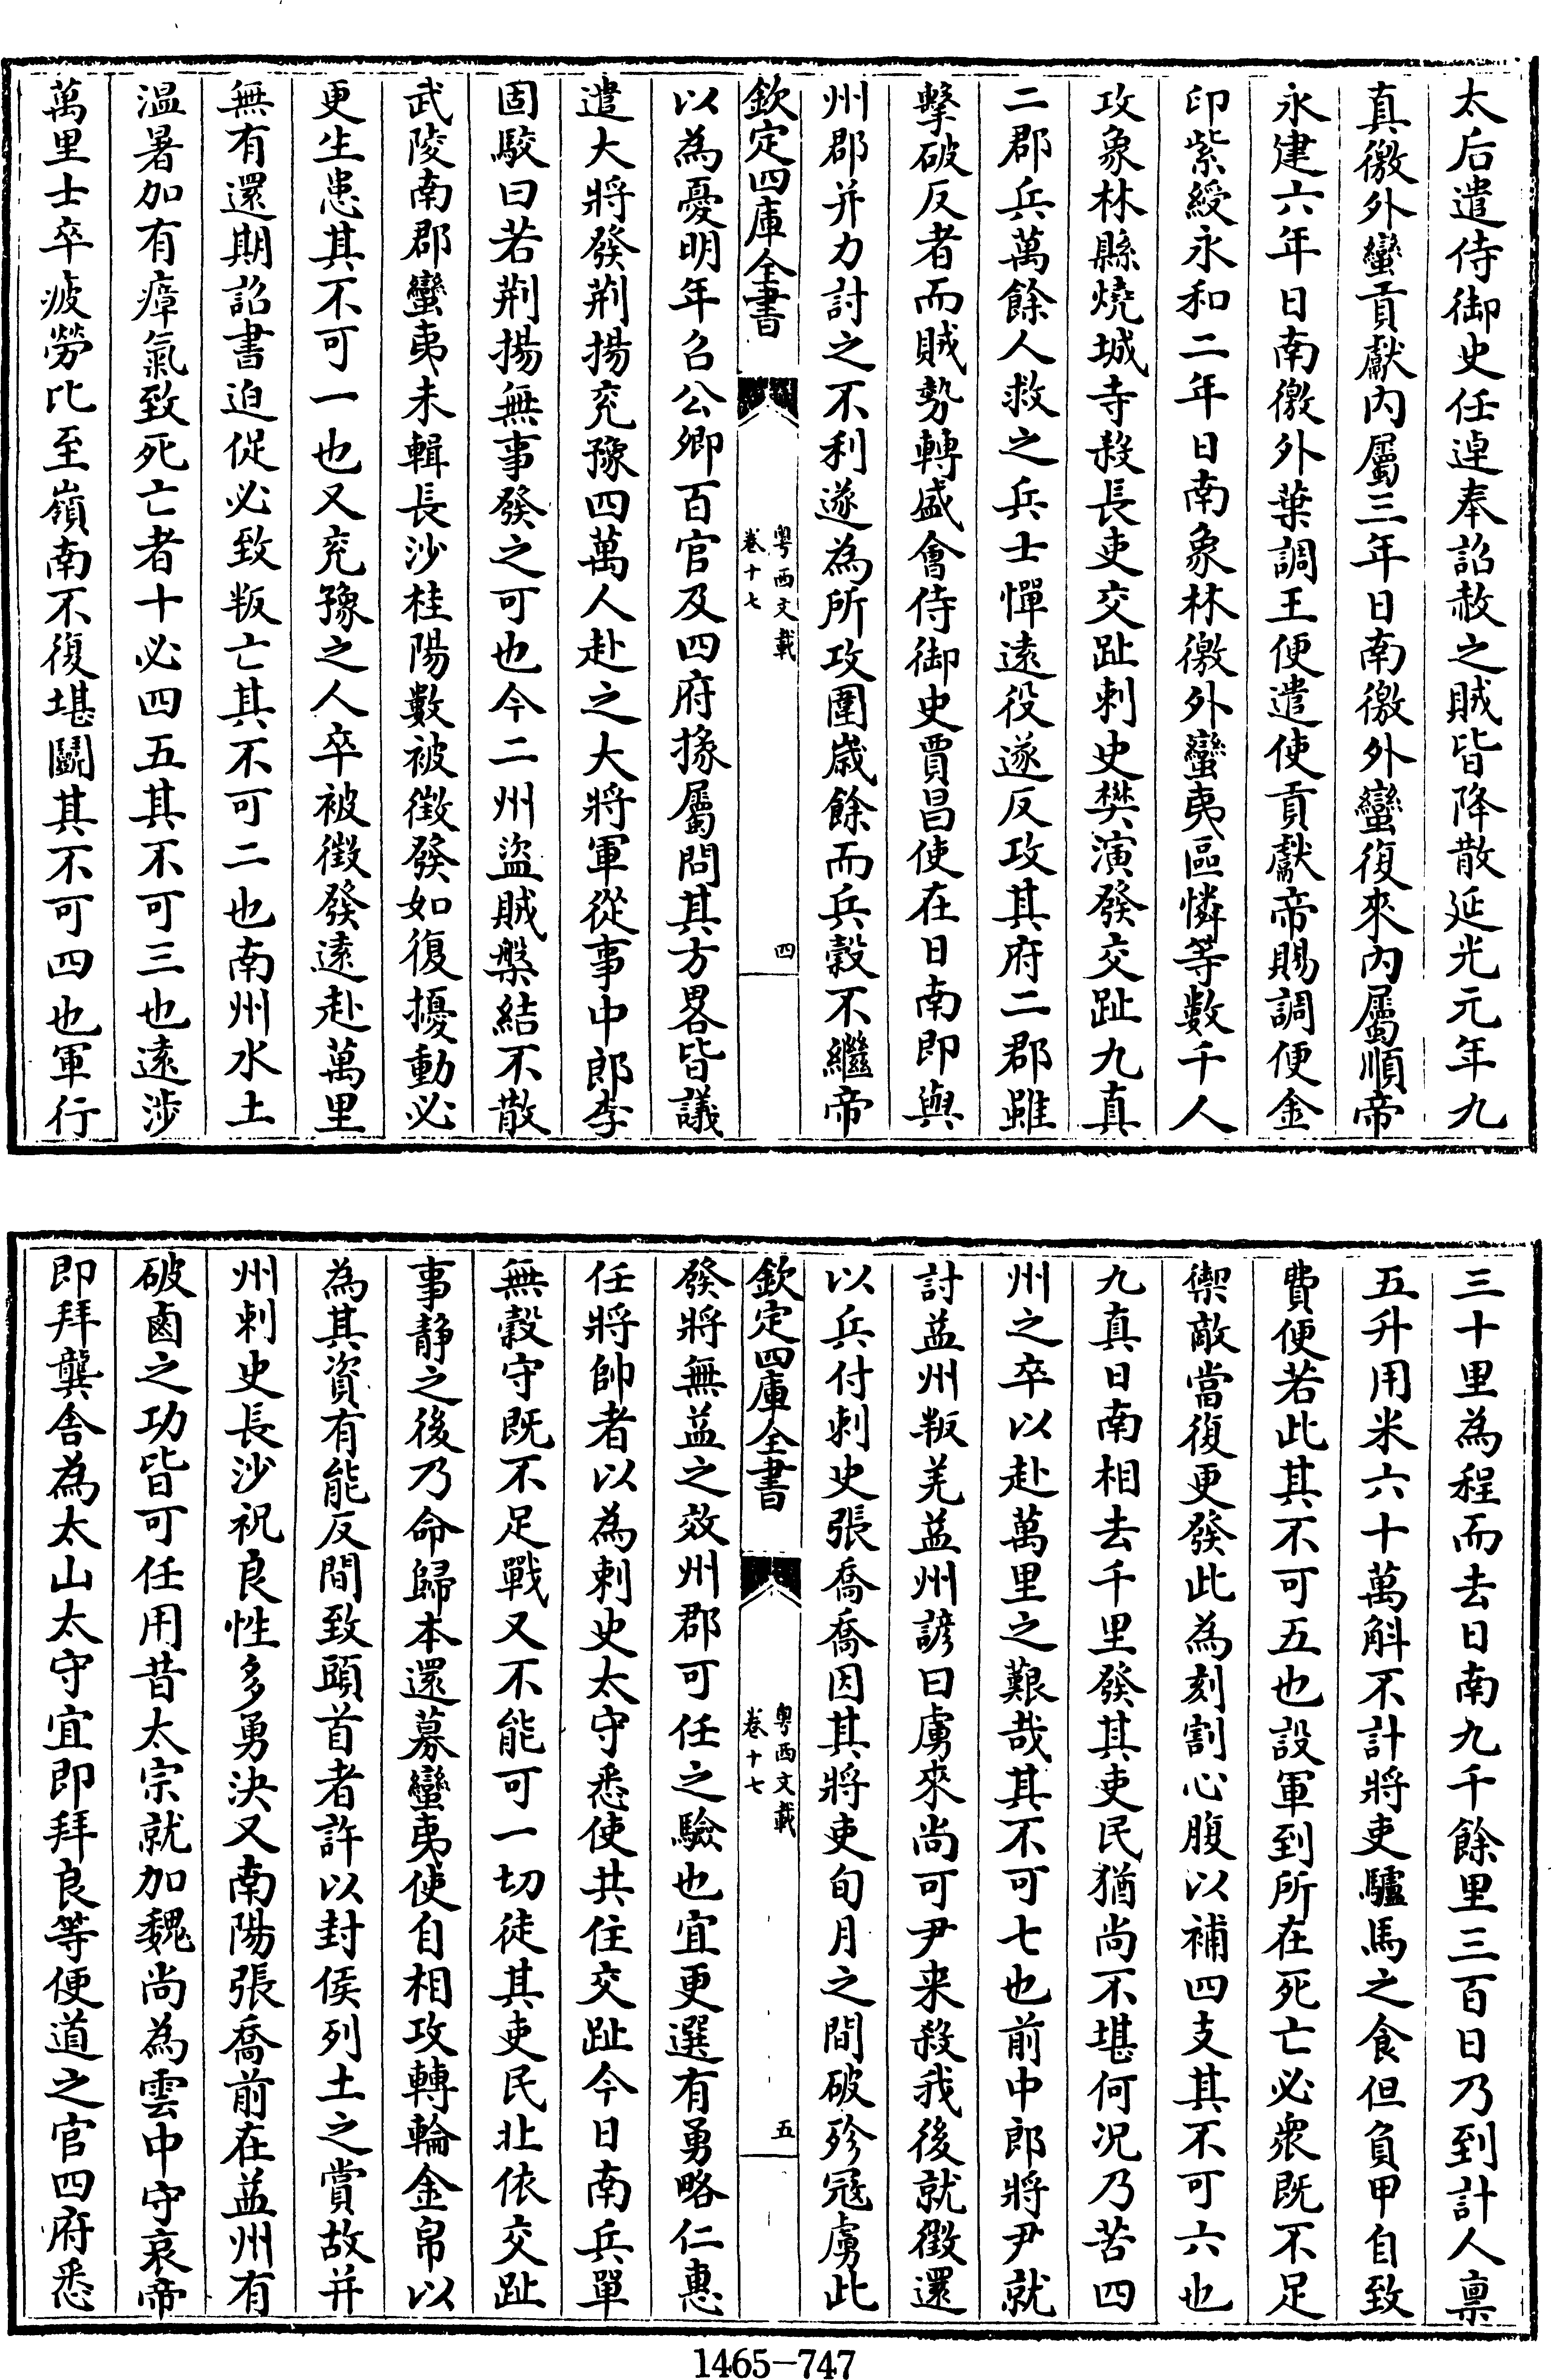 太后遣侍御史任逴奉詔赦之賊皆降散延光元年九
真徼外蠻貢獻内屬三年日南徼外蠻復來内屬順帝
永建六年日南徼外葉調王便遣使貢獻帝賜調便金
印紫綬永和二年日南象林徼外蠻夷區憐等數千人
攻象林縣燒城寺殺長吏交趾刺史樊演發交趾九真
二郡兵萬餘人救之兵士憚遠役遂反攻其府二郡雖
擊破反者而賊勢轉盛會侍御史賈昌使在日南即與
州郡并力討之不利遂為所攻圍歲餘而兵穀不繼帝
欽定四庫全書
粤西文載
卷十七
四
以為憂明年召公卿百官及四府掾屬問其方畧皆議
遣大將發荆揚兖豫四萬人赴之大將軍從事中郎李
固駮曰若荆揚無事發之可也今二州盜賊槃結不散
武陵南郡蠻夷未輯長沙桂陽數被徵發如復擾動必
更生患其不可一也又兖豫之人卒被徵發遠赴萬里
無有還期詔書迫促必致叛亡其不可二也南州水土
温暑加有瘴氣致死亡者十必四五其不可三也遠涉
萬里士卒疲勞比至嶺南不復堪鬭其不可四也軍行
三十里為程而去日南九千餘里三百日乃到計人禀
五升用米六十萬斛不計將吏驢馬之食但負甲自致
費便若此其不可五也設軍到所在死亡必衆既不足
禦敵當復更發此為刻割心腹以補四支其不可六也
九真日南相去千里發其吏民猶尚不堪何况乃苦四
州之卒以赴萬里之艱哉其不可七也前中郎將尹就
討益州叛羌益州諺曰虜來尚可尹来殺我後就徵還
以兵付刺史張喬喬因其將吏旬月之間破殄冦虜此
欽定四庫全書
粤西文載
卷十七
五
發將無益之效州郡可任之驗也宜更選有勇略仁惠
任將帥者以為刺史太守悉使共住交趾今日南兵單
無穀守既不足戰又不能可一切徒其吏民北依交趾
事静之後乃命歸本還募蠻夷使自相攻轉輪金帛以
為其資有能反間致頭首者許以封侯列土之賞故并
州刺史長沙祝良性多勇決又南陽張喬前在益州有
破鹵之功皆可任用昔太宗就加魏尚為雲中守哀帝
即拜龔舍為太山太守宜即拜良等便道之官四府悉
1465-747